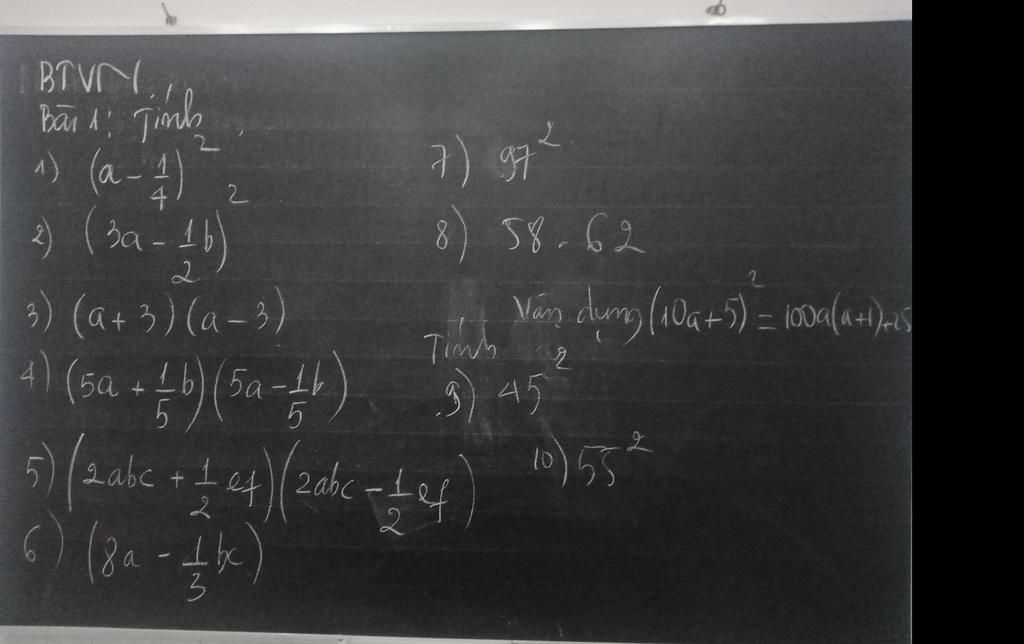 BTVN
Bài 1: Tính
1) (a - 1/4)²
2) (3a - 1/2 b)²
3) (a + 3)(a - 3)
4) (5a + 1/5 b)(5a - 1/5 b)
5) (2abc + 1/2 ef)(2abc - 1/2 ef)
6) (8a - 1/3 bc)
7) 97²
8) 58 . 62
Vận dụng (10a+5)² = 100a(a+1)+25
Tính
9) 45²
10) 55²